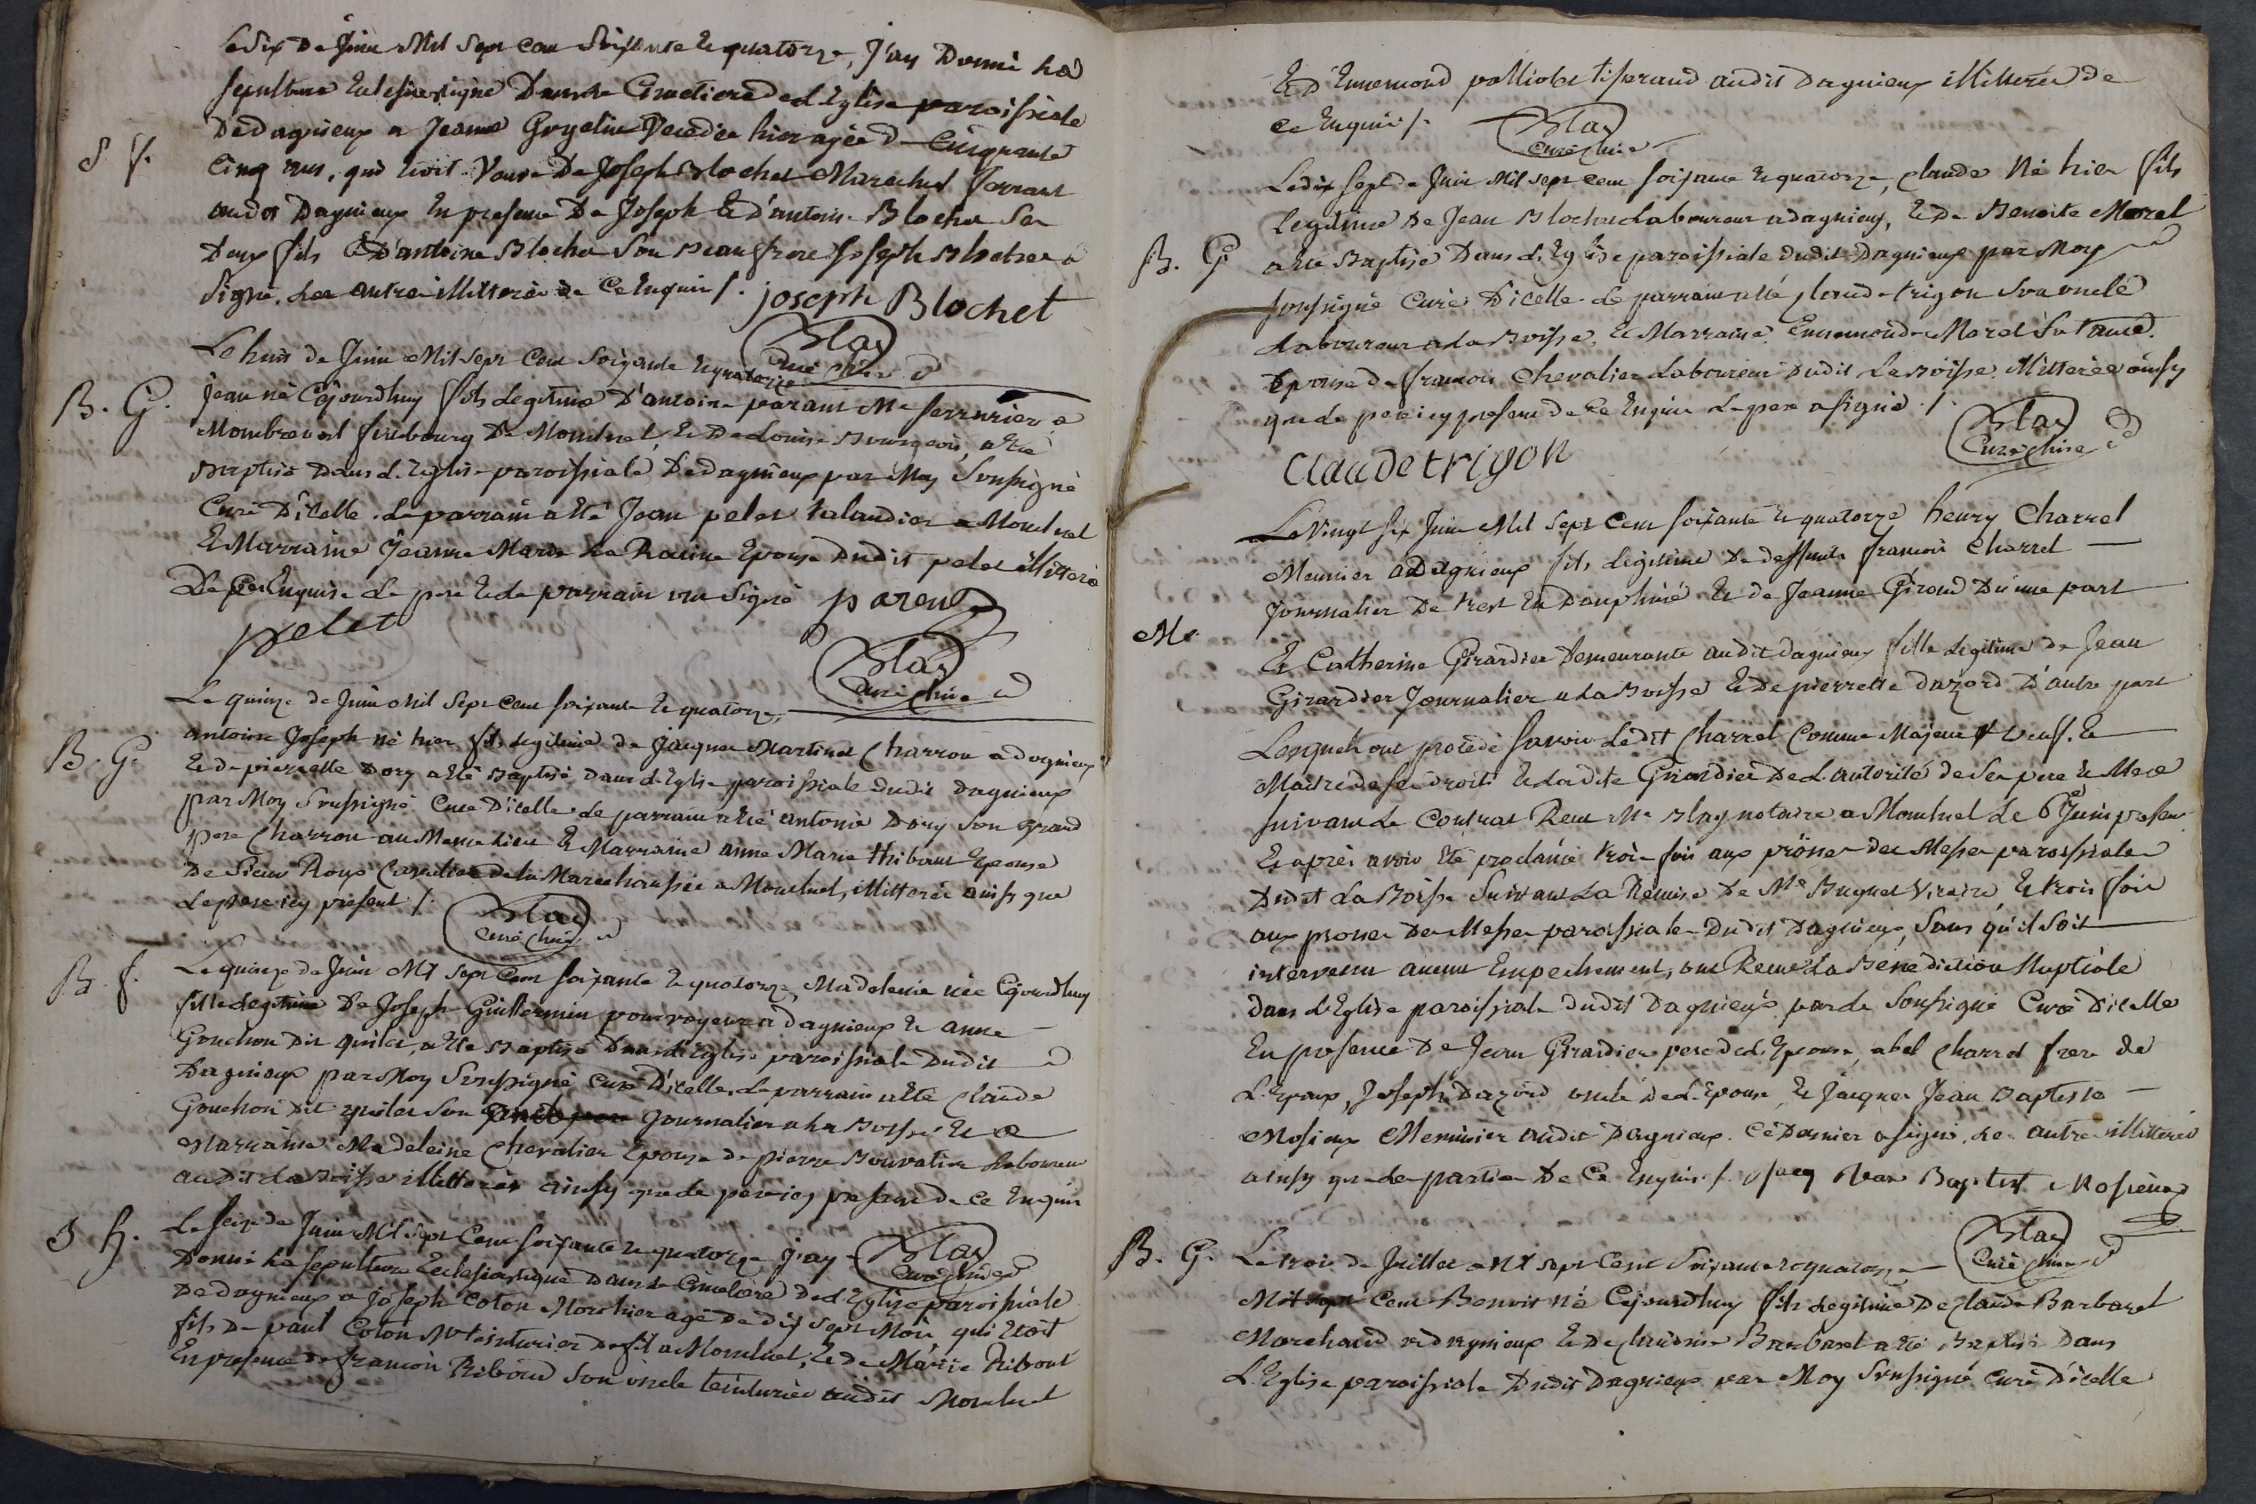 Le Six De Juin Mil Sept Cent Soixante Et quatorze, J'ay Donné La
sepulture Eclesiastique Dans Le Cimetiere de L'Eglise paroissiale
De dagnieux a Jeanne Decedée hier agée De Cinquante
S f.
Cinq ans, qui étoit Veuve De Joseph Blochet Marechal ferrant
audit Dagnieux En presence De Joseph Et d'antoine Blochet Ses
Deux fils Et D'antoine Blochet Son Beaufrere Joseph Blochet a
Signé, Les autres illitterés De Ce Enquis /. joseph Blochet
Blay
Curé Chine
Le huit de Juin Mil Sept Cent Soixante Et quatorze
B. G.
Jean né Cejourdhuy fils Legitime D'antoine parant Me serrurier a
Montbrevost fauxbourg De Montluel, Et De Louise Bourgeois, a Eté
Baptisé Dans L'Eglise paroissiale De dagnieux par Moy Soussigné
Curé D'icelle. Le parrain a Eté Jean pelet taland­ier a Montluel
Et Marraine Jeanne Marie La Racine Epouse Dudit pelet illitteré
De Ce Enquise Le pere Et Le parrain ont Signé parent
pelet
Blay
Curé Chine
Le quinze de Juin Mil Sept Cent soixante Et quatorze,
B. G.
antoine Joseph né hier fils Legitime de Jacques Martinet Charron a dagnieux
Et De pierrette Dory a Eté Baptisé Dans L'Eglise paroissiale dudit Dagnieux
par Moy Soussigné Curé D'icelle Le parrain a Eté antoine Dory Son grand
pere Charron au Meme Lieu Et Marraine anne Marie thibaut Epouse
De Sieur Roux Cavalier de La Marechaussée a Montluel, illitterés ainsy que
Le pere icy present /.
Blay
Curé Chine
B. f.
Le quinze de Juin Mil Sept Cent soixante Et quatorze, Madelenie née Cejourdhuy
fille Legitime De Joseph Guillermin pourvoyeur a dagnieux Et anne
Gouchon Dit quilet, a Eté Baptisé Dans L'Eglise paroissiale Dudit
Dagnieux par Moy Soussigné Curé D'icelle, Le parrain a Eté Claude
Gouchon Dit quilet Son Journalier a La Boisse Et
Marraine Madeleine Chevalier Epouse de pierre Bouvatier Laboureur
audit La Boisse illitterés ainsy que Le pere icy present de Ce Enquis
S h.
Le seize de Juin Mil Sept Cent soixante Et quatorze j'ay
Blay
Curé Chine
Donné La sepulture Ecclesiastique Dans Le Cimetiere De L'Eglise paroissiale
De dagnieux a Joseph Coton Mort hier agé De dix Sept Mois qui étoit
fils De paul Coton Me teinturier De fil a Montluel, Et De Marie Riboud
En presence de francois Riboud Son oncle teinturier audit Montluel
Et D'Ennemond palliolet tisserand audit Dagnieux illitterés de
Ce Enquis /.
Blay
Curé Chine
Le dix Sept de Juin Mil Sept Cent soixante Et quatorze, Claude Né hier fils
Legitime De Jean Blochet Laboureur a dagnieux, Et De Benoite Morel
B. G.
a Eté Baptisé Dans L'Eglise paroissiale Dudit Dagnieux par Moy
soussigné Curé D'icelle. Le parrain a Eté Claude trigon Son oncle
Laboureur a La Boisse, Et Marraine Ennemonde Morel Sa tante
Epouse de francois Chevalier Laboureur Dudit La Boisse, illitterée ainsy
que Le pere icy present de Ce Enquis Le parrain a signé /.
Blay
Curé Chine
Claude trigon
Le vingt six Juin Mil Sept Cent soixante Et quatorze henry Charrel
Meunier a Dagnieux fils Legitime De deffunt francois Charrel
Journalier De En Dauphiné Et de Jeanne Giroud D'une part
M.
Et Catherine Girardier Demeurante audit Dagnieux fille Legitime de Jean
Girardier Journalier a La Boisse Et De pierrette Dazord D'autre part
Lesquels ont procedé savoir Ledit Charrel Comme Majeur & Veuf, Et
Maitre de ses Droits Et Ladite Girardier De L'autorité de Ses pere Et Mere
suivant Le Contrat Recu Me Blay notaire a Montluel Le 6 Juin present
Et après avoir Eté proclamé trois fois aux prônes des Messes paroissiales
Dudit La Boisse Suivant La Remise De Me Buguet Vicaire Et trois fois
aux prones Des Messes paroissiales Dudit Dagnieux, Sans qu'il Soit
intervenu aucun Empechement, ont Recu La Bénédiction Nuptiale
Dans L'Eglise paroissiale Dudit Dagnieux par Le Soussigné Curé D'icelle
En presence De Jean Girardier pere De L'Epouse, abel Charrel frere de
L'Epoux, Joseph Dazord oncle De L'Epouse, Et Jacques Jean Baptiste
Mosieux Menuisier audit Dagnieux. Ce Dernier a signé, Les autres illitterés
ainsy que Les parties De Ce Enquis /. Jacq Jean Baptist Mosieux
Blay
Curé Chine
B. G.
Le trois de Juillet Mil Sept Cent Soixante Et quatorze
Benoit né Cejourdhuy fils Legitime De Claude Barbaret
Marchand a dagnieux Et De Claudine Barbaret a Eté Baptisé Dans
L'Eglise paroissiale Dudit Dagnieux par Moy Soussigné Curé D'icelle